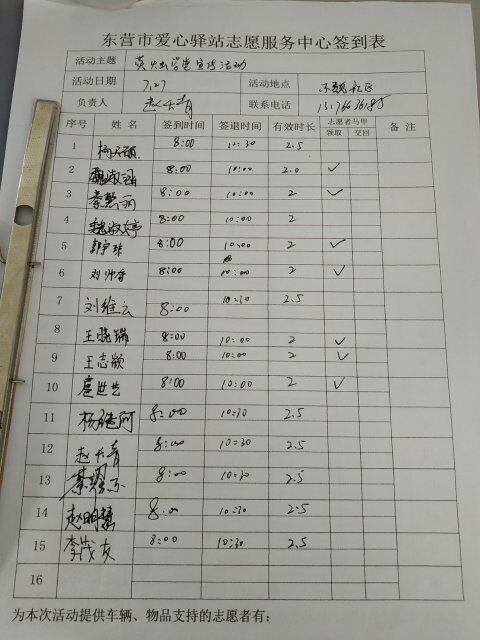 东营市爱心驿站志愿服务中心签到表
活动主题 宣传活动
活动日期 7.27 活动地点 社区
负责人 赵大青 联系电话
序号 姓名 签到时间 签退时间 有效时长 志愿者马甲 领取 交回 备注
1 8:00 10:30 2.5
2 魏淑涵 8:00 10:00 2.0 ✓
3 秦慧丽 8:00 10:00 2 ✓
4 魏淑婷 8:00 10:00 2
5 8:00 10:00 2 ✓
6 刘帅奇 8:00 10:00 2 ✓
7 刘维云 8:00 10:30 2.5
8 王晓瑞 8:00 10:00 2 ✓
9 王志颖 8:00 10:00 2 ✓
10 8:00 10:00 2 ✓
11 8:00 10:30 2.5
12 赵大青 8:00 10:30 2.5
13 8:00 10:30 2.5
14 赵明慧 8:00 10:30 2.5
15 李茂友 8:00 10:30 2.5
16
为本次活动提供车辆、物品支持的志愿者有: